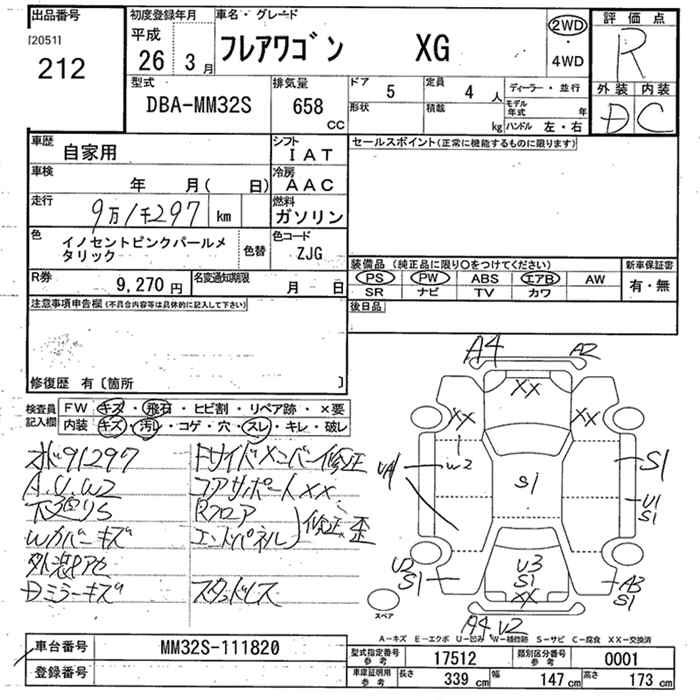 出品番号
[2051]
212
初度登録年月
平成
26 3月
車名・グレード
フレアワゴン XG
2WD
・
4WD
評価点
R
外装 内装
D C
型式
DBA-MM32S
排気量
658
CC
ドア 5
定員 4 人
ディーラー・並行
形状
積載 kg
モデル年式 年
ハンドル 左・右
車歴
自家用
シフト
IAT
車検
年 月( 日)
冷房
AAC
走行
9万1千297 km
燃料
ガソリン
色
イノセントピンクパールメタリック
色替
色コード
ZJG
R券
9,270 円
名変通知期限
月 日
セールスポイント(正常に機能するものに限ります)
装備品 (純正品に限り○をつけてください)
新車保証書
PS PW ABS エアB AW
SR ナビ TV カワ
有・無
後日品
注意事項申告欄(不具合内容等は具体的に記入して下さい)
修復歴 有〔箇所 〕
検査員
記入欄
FW キズ・飛石・ヒビ割・リペア跡・×要
内装 キズ・汚レ・コゲ・穴・スレ・キレ・破レ
91297
A.U.W2
Wカバーキズ
Dミラーキズ
Fサイドメンバー修正
コアサポートXX
Rフロア
エンドパネル
修正 歪
スタッドレス
A4
A2
XX
XX
XX
W2
U1
S1
S1
U1
S1
U2
S1
U3
S1
XX
A3
S1
A4 U2
スペア
A−キズ E−エクボ U−凹み W−補修跡 S−サビ C−腐食 XX−交換済
車台番号
MM32S-111820
登録番号
型式指定番号
参考
17512
類別区分番号
参考
0001
車庫証明用
参考
長さ 339 cm
幅 147 cm
高さ 173 cm